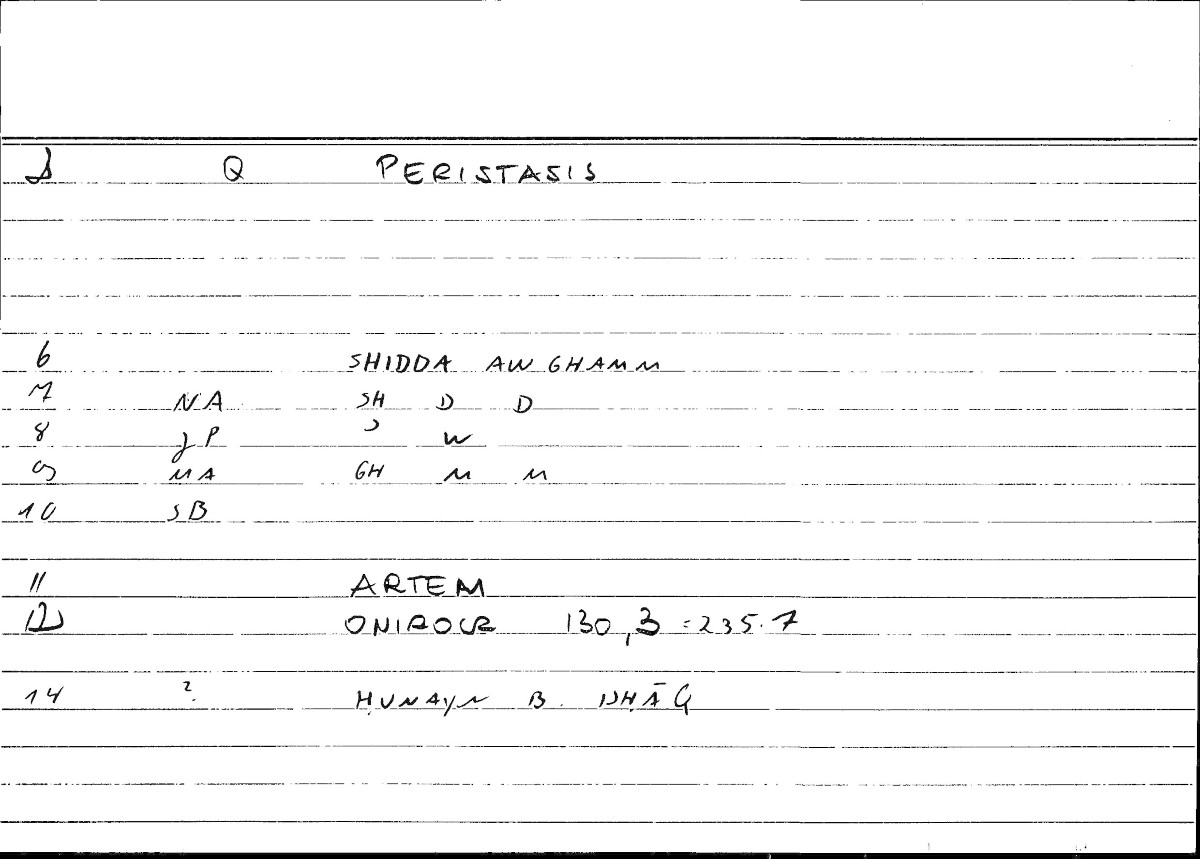 1 Q PERISTASIS
6 SHIDDA AW GHAMM
7 NA SH D D
8 JP ʾ W
9 MA GH M M
10 SB
11 ARTEM
12 ONIROCR 130,3 = 235.7
14 2 ḤUNAYN B. ISḤĀQ